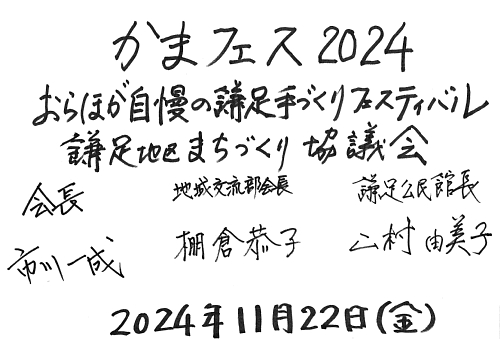 かまフェス2024
おらほが自慢の鎌足手づくりフェスティバル
鎌足地区まちづくり協議会
会長 地域交流部会長 鎌足公民館長
市川一成 棚倉恭子 山村由美子
2024年11月22日(金)